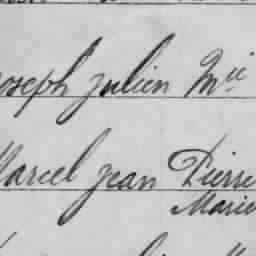 Joseph Julien Mie
Marcel Jean Pierre
Marie